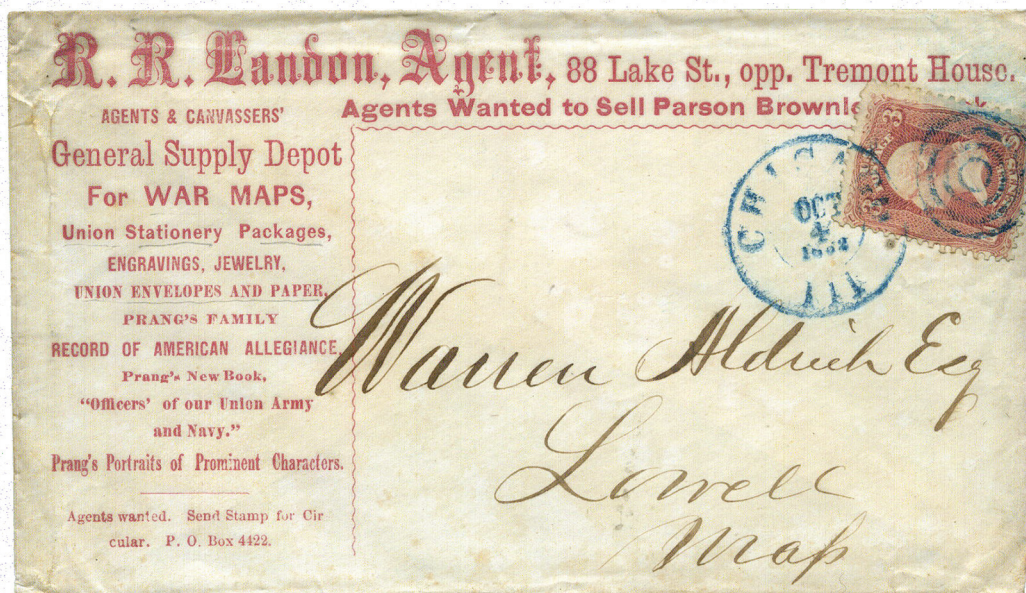 R. R. Landon, Agent, 88 Lake St., opp. Tremont House.
Agents Wanted to Sell Parson
AGENTS & CANVASSERS'
General Supply Depot
For WAR MAPS,
Union Stationery Packages,
ENGRAVINGS, JEWELRY,
UNION ENVELOPES AND PAPER,
PRANG'S FAMILY
RECORD OF AMERICAN ALLEGIANCE,
Prang's New Book,
"Officers' of our Union Army
and Navy."
Prang's Portraits of Prominent Characters.
Agents wanted. Send Stamp for Cir
cular. P. O. Box 4422.
OCT
4
ILL
3
Warren Aldrich Esq
Lowell
Mass